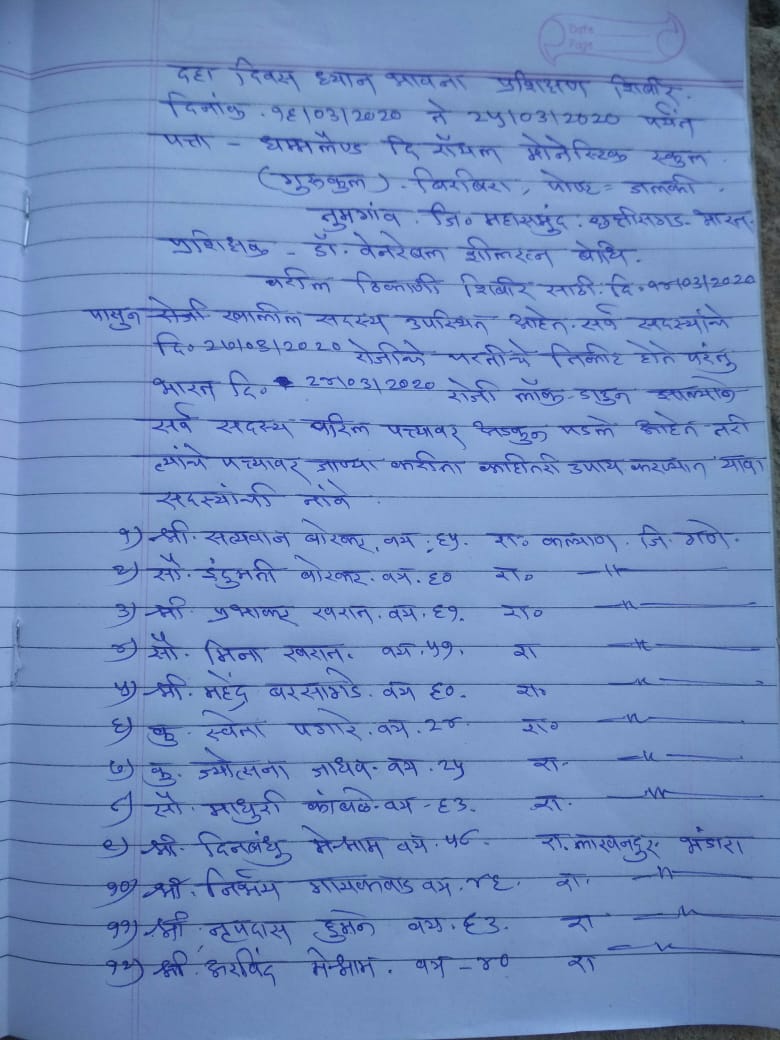 Date
Page
दहा दिवस ध्यान भावना प्रशिक्षण शिबीर.
दिनांक. १६/०३/2020 ते २५/०३/2020 पर्यंत
पत्ता - धम्मलैण्ड दि रॉयल मोनेस्टिक स्कुल.
(गुरुकुल). बिरबिरा, पोष्ट = डालकी.
तुमगांव. जि० महासमुंद. छत्तीसगड. भारत.
प्रशिक्षक - डॉ. वेनरेबल शीलरत्न बोधि.
वरील ठिकाणी शिबीर साठी. दि. १५/०३/2020
पासुन रोजी खालील सदस्य उपस्थित आहेत. सर्व सदस्यांचे
दि० २७/०३/2020 रोजीचे परतीचे तिकीट होते परंतु
भारत दि० २४/०३/2020 रोजी लॉक-डाडुन झाल्याने
सर्व सदस्य वरिल पत्त्यावर अडकुन पडले आहेत तरी
त्यांचे पत्त्यावर जाण्या करीता काहीतरी उपाय करण्यात यावा
सदस्यांची नांवे.
१) श्री. सत्यवान बोरकर. वय. ६५. रा० कल्याण. जि. ठाणे.
२) सौ. इंदुमती बोरकर. वय. ६० रा० —॥—
३) श्री प्रभाकर खरात. वय. ६१. रा० —॥—
४) सौ. मिना खरात. वय. ५१. रा —॥—
५) श्री. महेंद्र बरसागडे. वय ६०. रा० —॥—
६) कु. स्वेता पगारे. वय. २४. रा० —॥—
७) कु. ज्योत्सना जाधव. वय. २५ रा. —॥—
८) सौ. माधुरी कांबळे. वय - ६३. रा. —॥—
९) श्री. दिनबंधु मेश्राम वय. ५८. रा. लाखनदुर. भंडारा
१०) श्री. निर्भय गायकवाड वय. ४६. रा. —॥—
११) श्री. नृपदास हुमने वय. ६३. रा —॥—
१२) श्री. अरविंद मेश्राम. वय - ४० रा —॥—